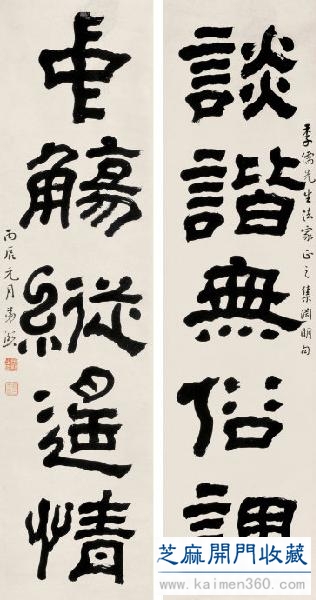 談諧無俗調
季儒先生法家正之集淵明句
中觴縱遙情
丙辰元月曾熙
芝麻開門收藏
www.kaimen360.com